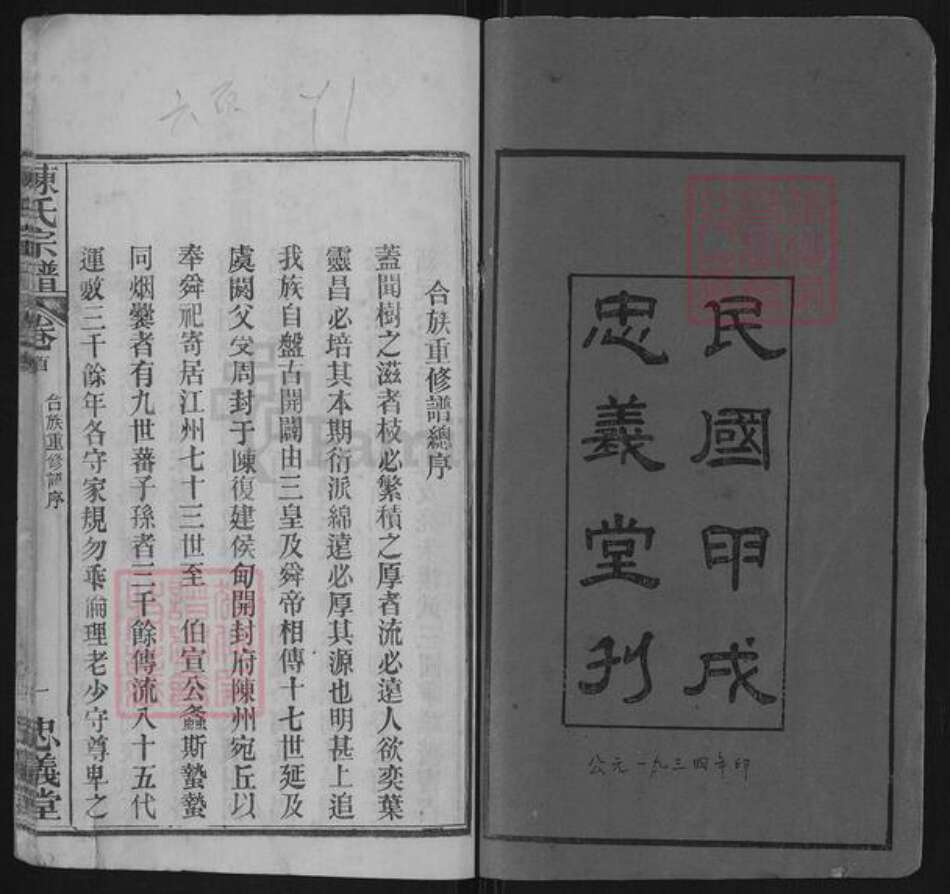 民國甲戌
忠義堂刊
公元一九三四年印
合族重修譜總序
蓋聞樹之滋者枝必繁積之厚者流必遠人欲奕葉
靈昌必培其本期衍派綿遠必厚其源也明甚上追
我族自盤古開闢由三皇及舜帝相傳十七世延及
虞閼父受周封于陳復建侯甸開封府陳州宛丘以
奉舜祀寄居江州七十三世至 伯宣公螽斯蟄蟄
同烟爨者有九世蕃子孫者三千餘傳流八十五代
運敷三千餘年各守家規勿乖倫理老少守尊卑之
陳氏宗譜
卷首
合族重修譜序
一
忠義堂